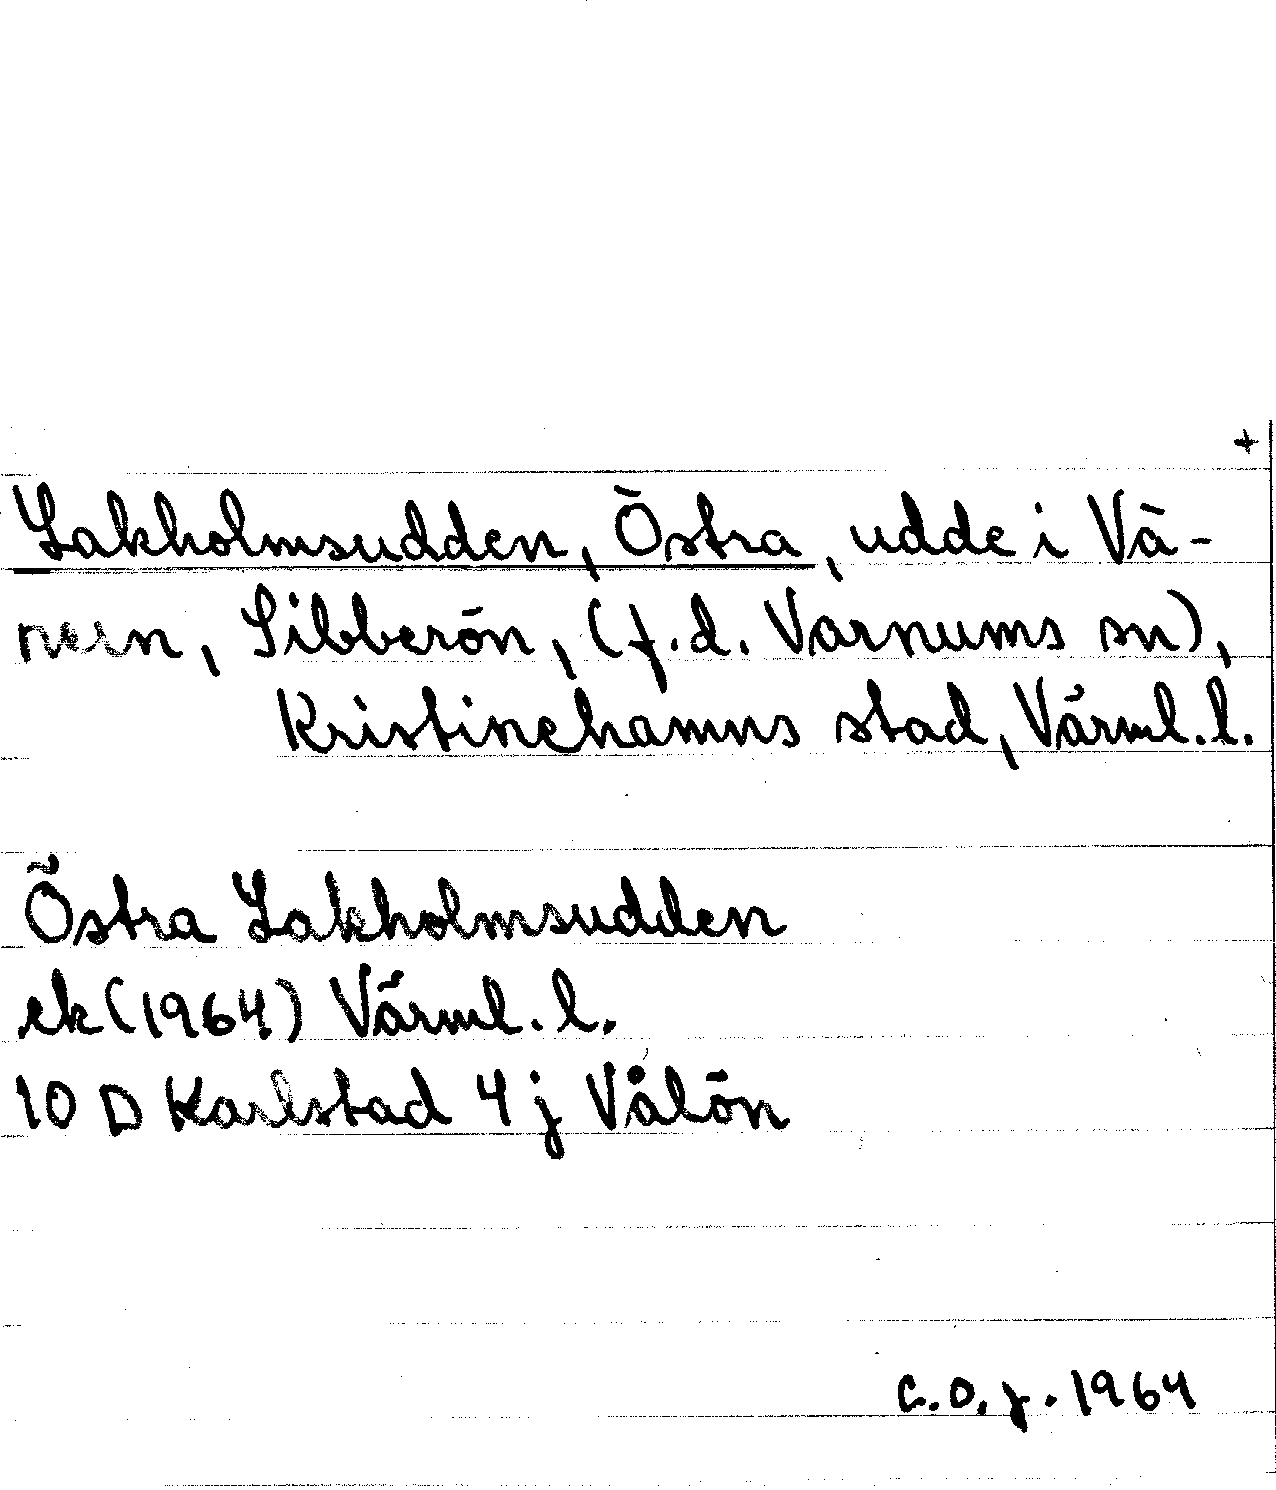 +
Lakholmsudden, Östra, udde i Vä-
nern, Sibberön, (f.d. Varnums sn),
Kristinehamns stad, Värml. l.
Östra Lakholmsudden
ek (1964) Värml. l.
10 D Karlstad 4 j Vålön
C.O.J. 1964